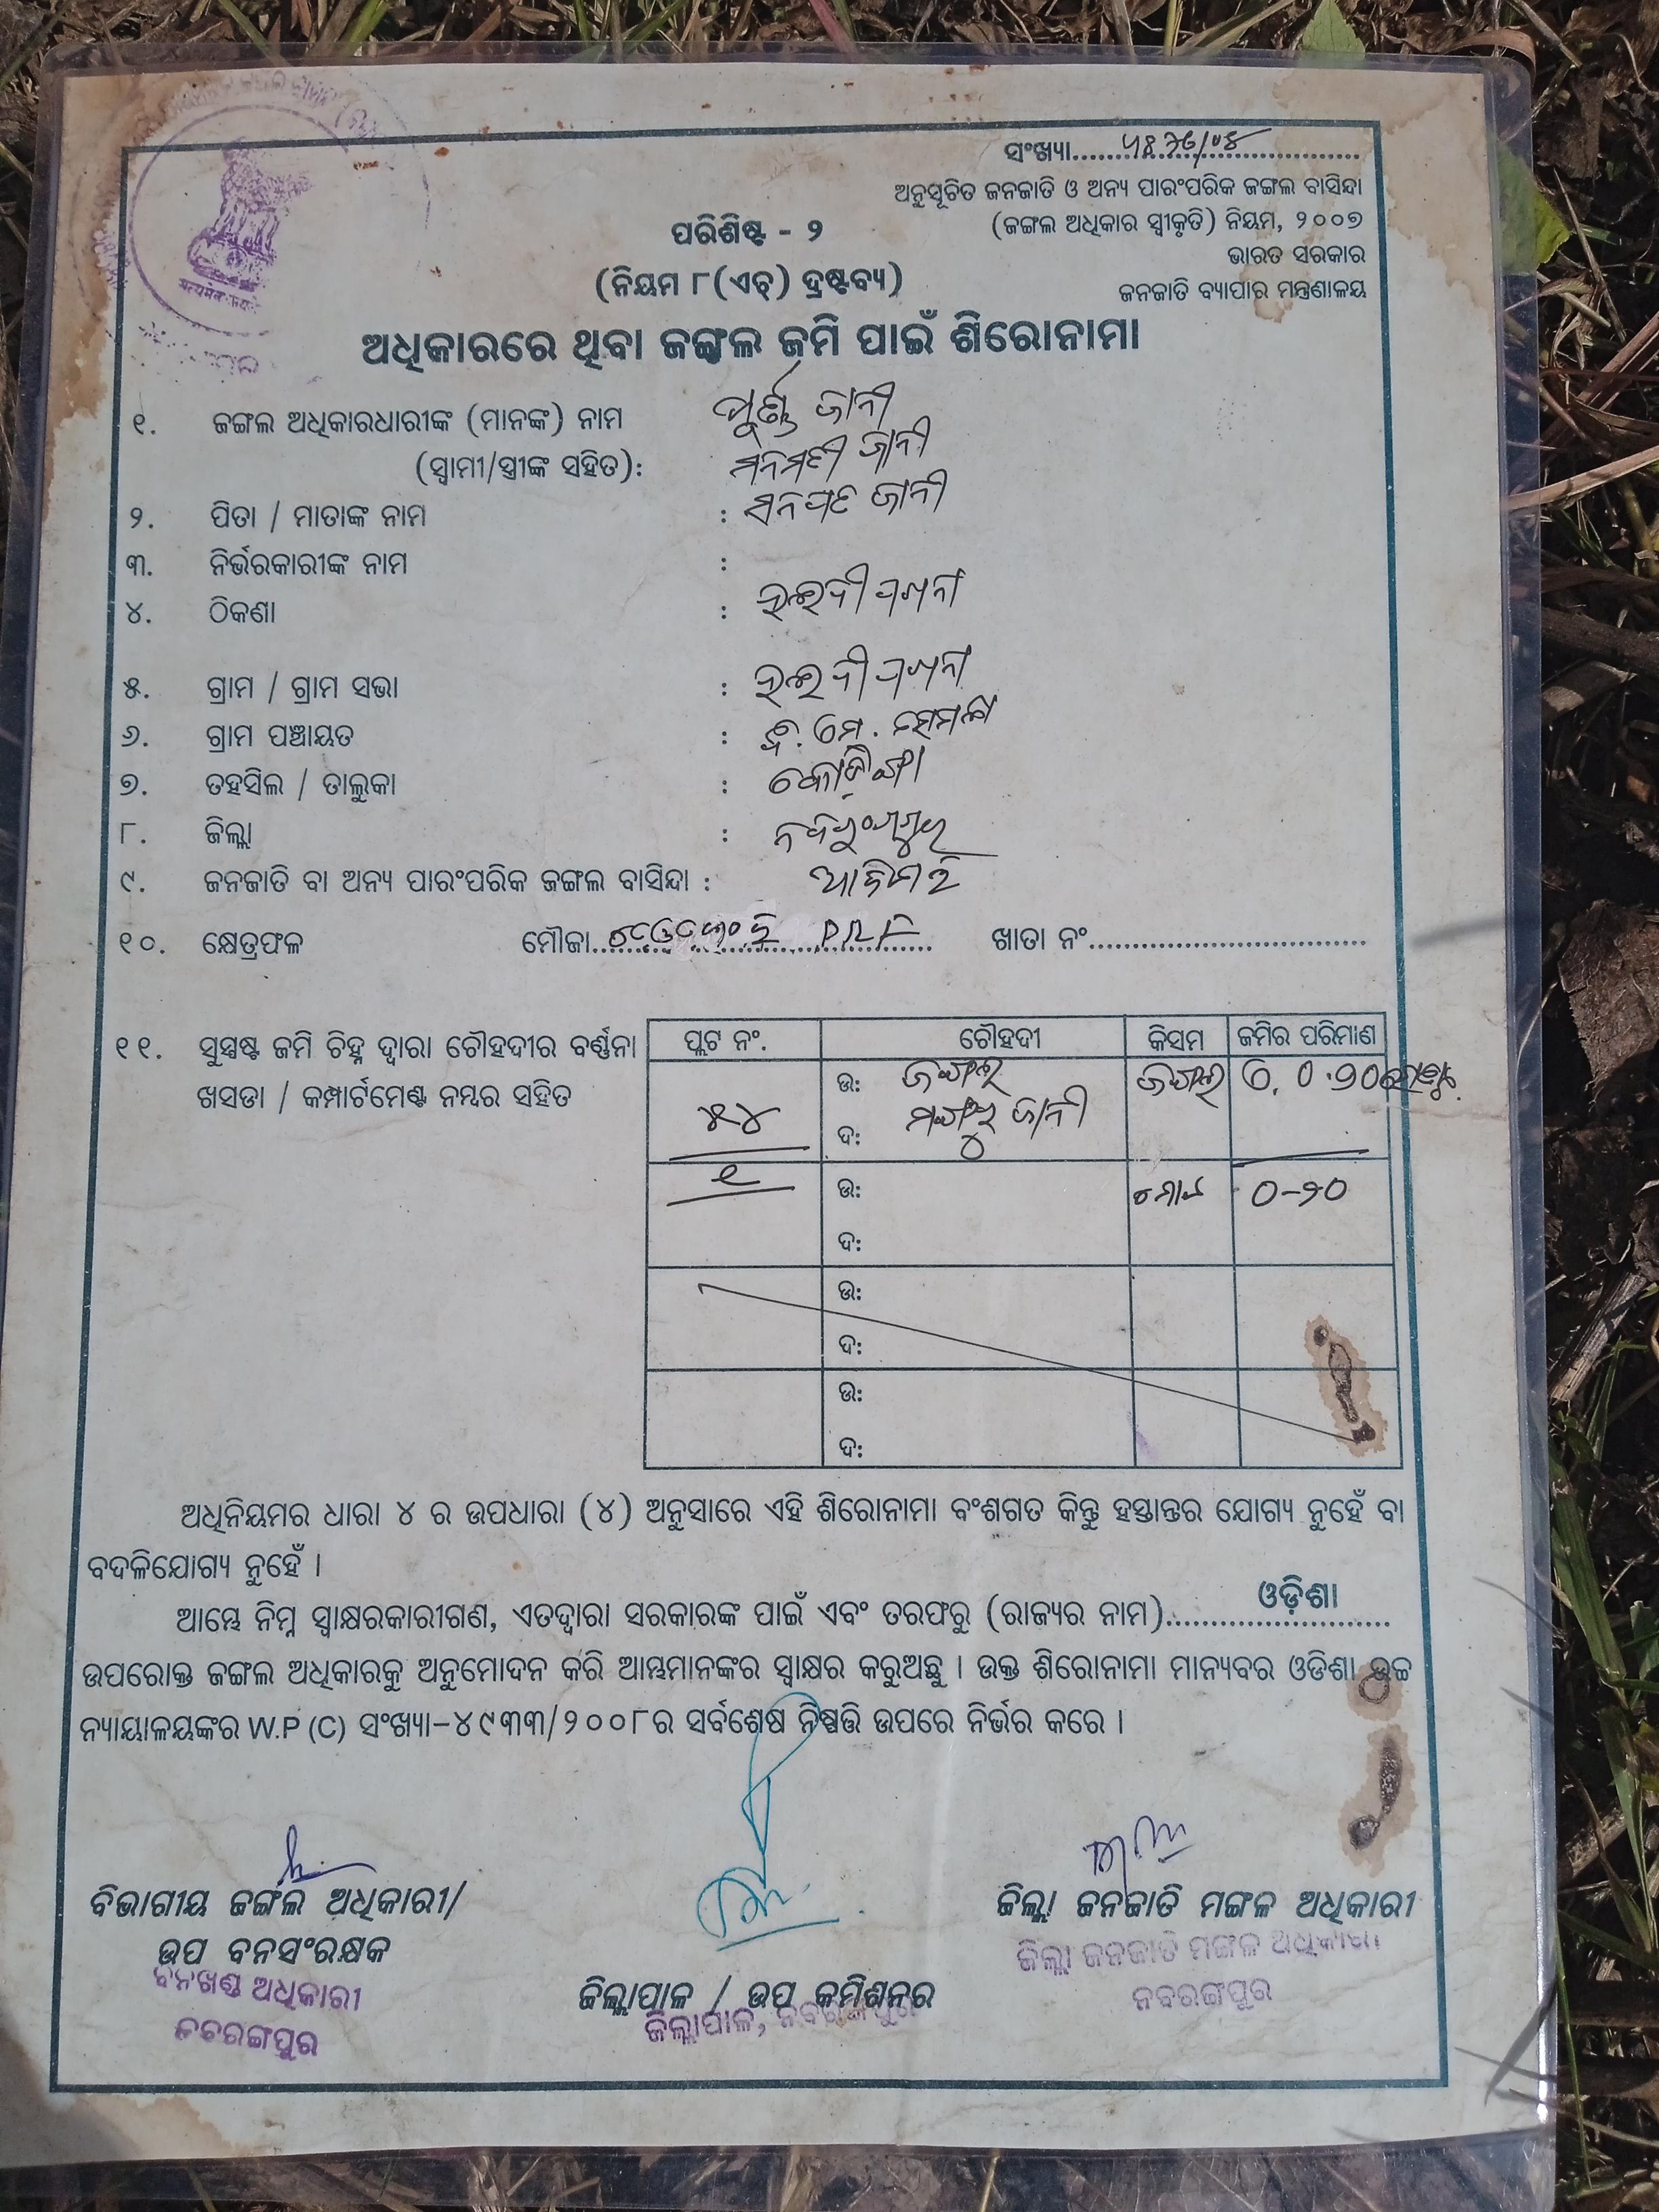 ସଂଖ୍ୟା
ଅନୁସୂଚିତ ଜନଜାତି ଓ ଅନ୍ୟ ପାରଂପରିକ ଜଙ୍ଗଲ ବାସିନ୍ଦା
(ଜଙ୍ଗଲ ଅଧିକାର ସ୍ୱୀକୃତି) ନିୟମ, ୨୦୦୭
ଭାରତ ସରକାର
ଜନଜାତି ବ୍ୟାପାର ମନ୍ତ୍ରଣାଳୟ
ପରିଶିଷ୍ଟ - ୨
(ନିୟମ ୮(ଏଚ୍) ଦ୍ରଷ୍ଟବ୍ୟ)
ଅଧିକାରରେ ଥିବା ଜଙ୍ଗଲ ଜମି ପାଇଁ ଶିରୋନାମା
୧. ଜଙ୍ଗଲ ଅଧିକାରଧାରୀଙ୍କ (ମାନଙ୍କ) ନାମ ପୂର୍ଣ୍ଣ ଜାନୀ
(ସ୍ୱାମୀ/ସ୍ତ୍ରୀଙ୍କ ସହିତ): ଜାନୀ
୨. ପିତା / ମାତାଙ୍କ ନାମ : ଜାନୀ
୩. ନିର୍ଭରକାରୀଙ୍କ ନାମ :
୪. ଠିକଣା :
୫. ଗ୍ରାମ / ଗ୍ରାମ ସଭା :
୬. ଗ୍ରାମ ପଞ୍ଚାୟତ :
୭. ତହସିଲ / ତାଲୁକା :
୮. ଜିଲ୍ଲା :
୯. ଜନଜାତି ବା ଅନ୍ୟ ପାରଂପରିକ ଜଙ୍ଗଲ ବାସିନ୍ଦା :
୧୦. କ୍ଷେତ୍ରଫଳ ମୌଜା PRF ଖାତା ନଂ
୧୧. ସୁସ୍ପଷ୍ଟ ଜମି ଚିହ୍ନ ଦ୍ୱାରା ଚୌହଦୀର ବର୍ଣ୍ଣନା
ଖସଡା / କମ୍ପାର୍ଟମେଣ୍ଟ ନମ୍ବର ସହିତ
ପ୍ଲଟ ନଂ. ଚୌହଦୀ କିସମ ଜମିର ପରିମାଣ
ଉ: ଜଙ୍ଗଲ ଜଙ୍ଗଲ
୫୪ ଦ: ଜାନୀ
୧ ଉ: ୦-୨୦
ଦ:
ଉ:
ଦ:
ଉ:
ଦ:
ଅଧିନିୟମର ଧାରା ୪ ର ଉପଧାରା (୪) ଅନୁସାରେ ଏହି ଶିରୋନାମା ବଂଶଗତ କିନ୍ତୁ ହସ୍ତାନ୍ତର ଯୋଗ୍ୟ ନୁହେଁ ବା
ବଦଳିଯୋଗ୍ୟ ନୁହେଁ ।
ଆମ୍ଭେ ନିମ୍ନ ସ୍ୱାକ୍ଷରକାରୀଗଣ, ଏତଦ୍ୱାରା ସରକାରଙ୍କ ପାଇଁ ଏବଂ ତରଫରୁ (ରାଜ୍ୟର ନାମ) ଓଡ଼ିଶା
ଉପରୋକ୍ତ ଜଙ୍ଗଲ ଅଧିକାରକୁ ଅନୁମୋଦନ କରି ଆମ୍ଭମାନଙ୍କର ସ୍ୱାକ୍ଷର କରୁଅଛୁ । ଉକ୍ତ ଶିରୋନାମା ମାନ୍ୟବର ଓଡିଶା ଉଚ୍ଚ
ନ୍ୟାୟାଳୟଙ୍କର W.P (C) ସଂଖ୍ୟା-୪୯୩୩/୨୦୦୮ର ସର୍ବଶେଷ ନିଷ୍ପତ୍ତି ଉପରେ ନିର୍ଭର କରେ ।
ବିଭାଗୀୟ ଜଙ୍ଗଲ ଅଧିକାରୀ/
ଉପ ବନସଂରକ୍ଷକ
ବନଖଣ୍ଡ ଅଧିକାରୀ
ନବରଙ୍ଗପୁର
ଜିଲ୍ଲାପାଳ / ଉପ କମିଶନର
ଜିଲ୍ଲାପାଳ, ନବରଙ୍ଗପୁର
ଜିଲ୍ଲା ଜନଜାତି ମଙ୍ଗଳ ଅଧିକାରୀ
ଜିଲ୍ଲା ଜନଜାତି ମଙ୍ଗଳ ଅଧିକାରୀ
ନବରଙ୍ଗପୁର